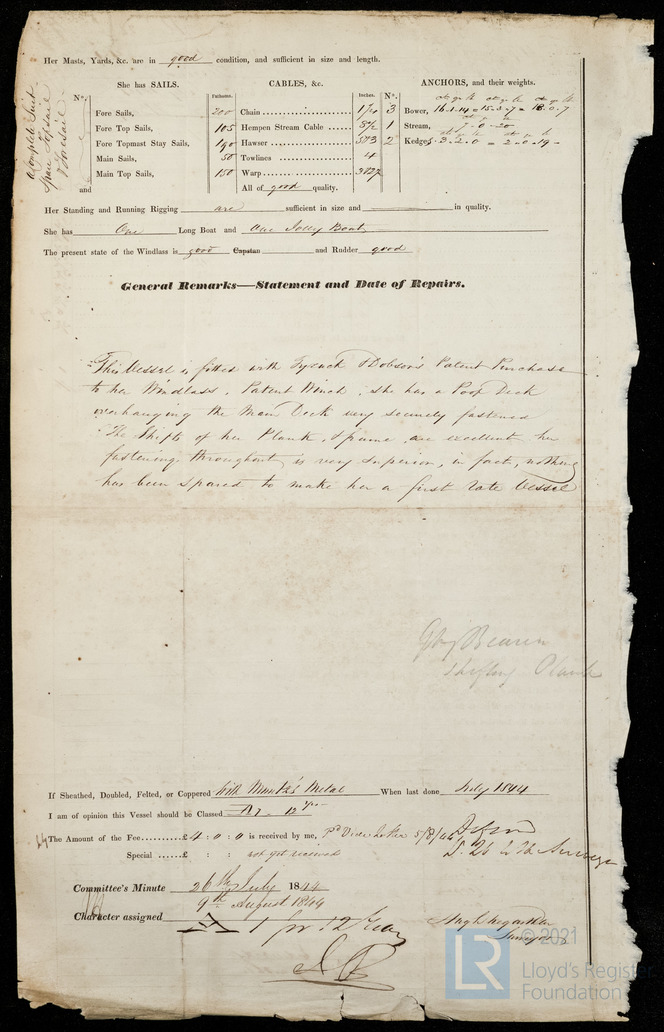 Her Masts, Yards, &c. are in good condition, and sufficient in size and length.
She has SAILS.
CABLES, &c.
ANCHORS, and their weights.
Complete Suit
Spare Topsail
& Foresail
N°.
Fathoms.
Inches.
N°.
Fore Sails,
200
Chain
3
Bower,
Fore Top Sails,
105
Hempen Stream Cable
8½
1
Stream,
Fore Topmast Stay Sails,
190
Hawser
2
Kedges
Main Sails,
50
Towlines
4
Main Top Sails,
150
Warp
and
All of good quality.
Her Standing and Running Rigging are sufficient in size and in quality.
She has One Long Boat and One Jolly Boat
The present state of the Windlass is good Capstan and Rudder good
General Remarks—Statement and Date of Repairs.
This Vessel is fitted with Tysack & Dobson's Patent Purchase
to her Windlass, Patent Winch, she has a Poop Deck
overhanging the Main Deck very securely fastened
The Shifts of her Plank, & frame are excellent her
fastenings throughout is very superior, in fact, nothing
has been spared to make her a first rate Vessel
Shifting Plank
If Sheathed, Doubled, Felted, or Coppered With Muntz's Metal When last done July 1844
I am of opinion this Vessel should be Classed A 1. 12 yrs
The Amount of the Fee........£ 4 : 0 : 0 is received by me, 5/8/44
Special ......£ : : not yet received
Committee's Minute 26th July 1844
9th August 1844
Character assigned A 1 for 12 Years
Surveyor
© 2021
LR
Lloyd's Register
Foundation